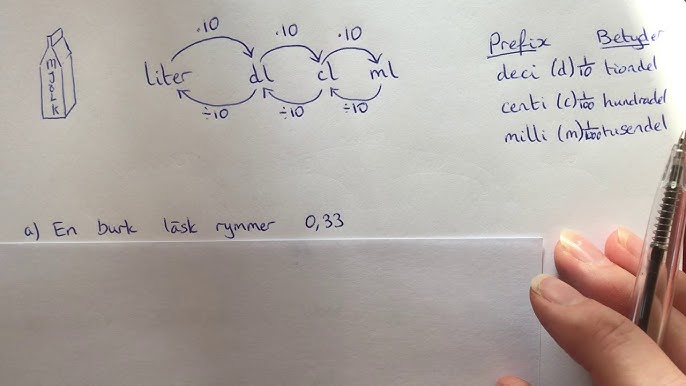 ·10 ·10 ·10
liter dl cl ml
÷10 ÷10 ÷10
MJÖLK
Prefix Betyder
deci (d) 1/10 tiondel
centi (c) 1/100 hundradel
milli (m) 1/1000 tusendel
a) En burk läsk rymmer 0,33